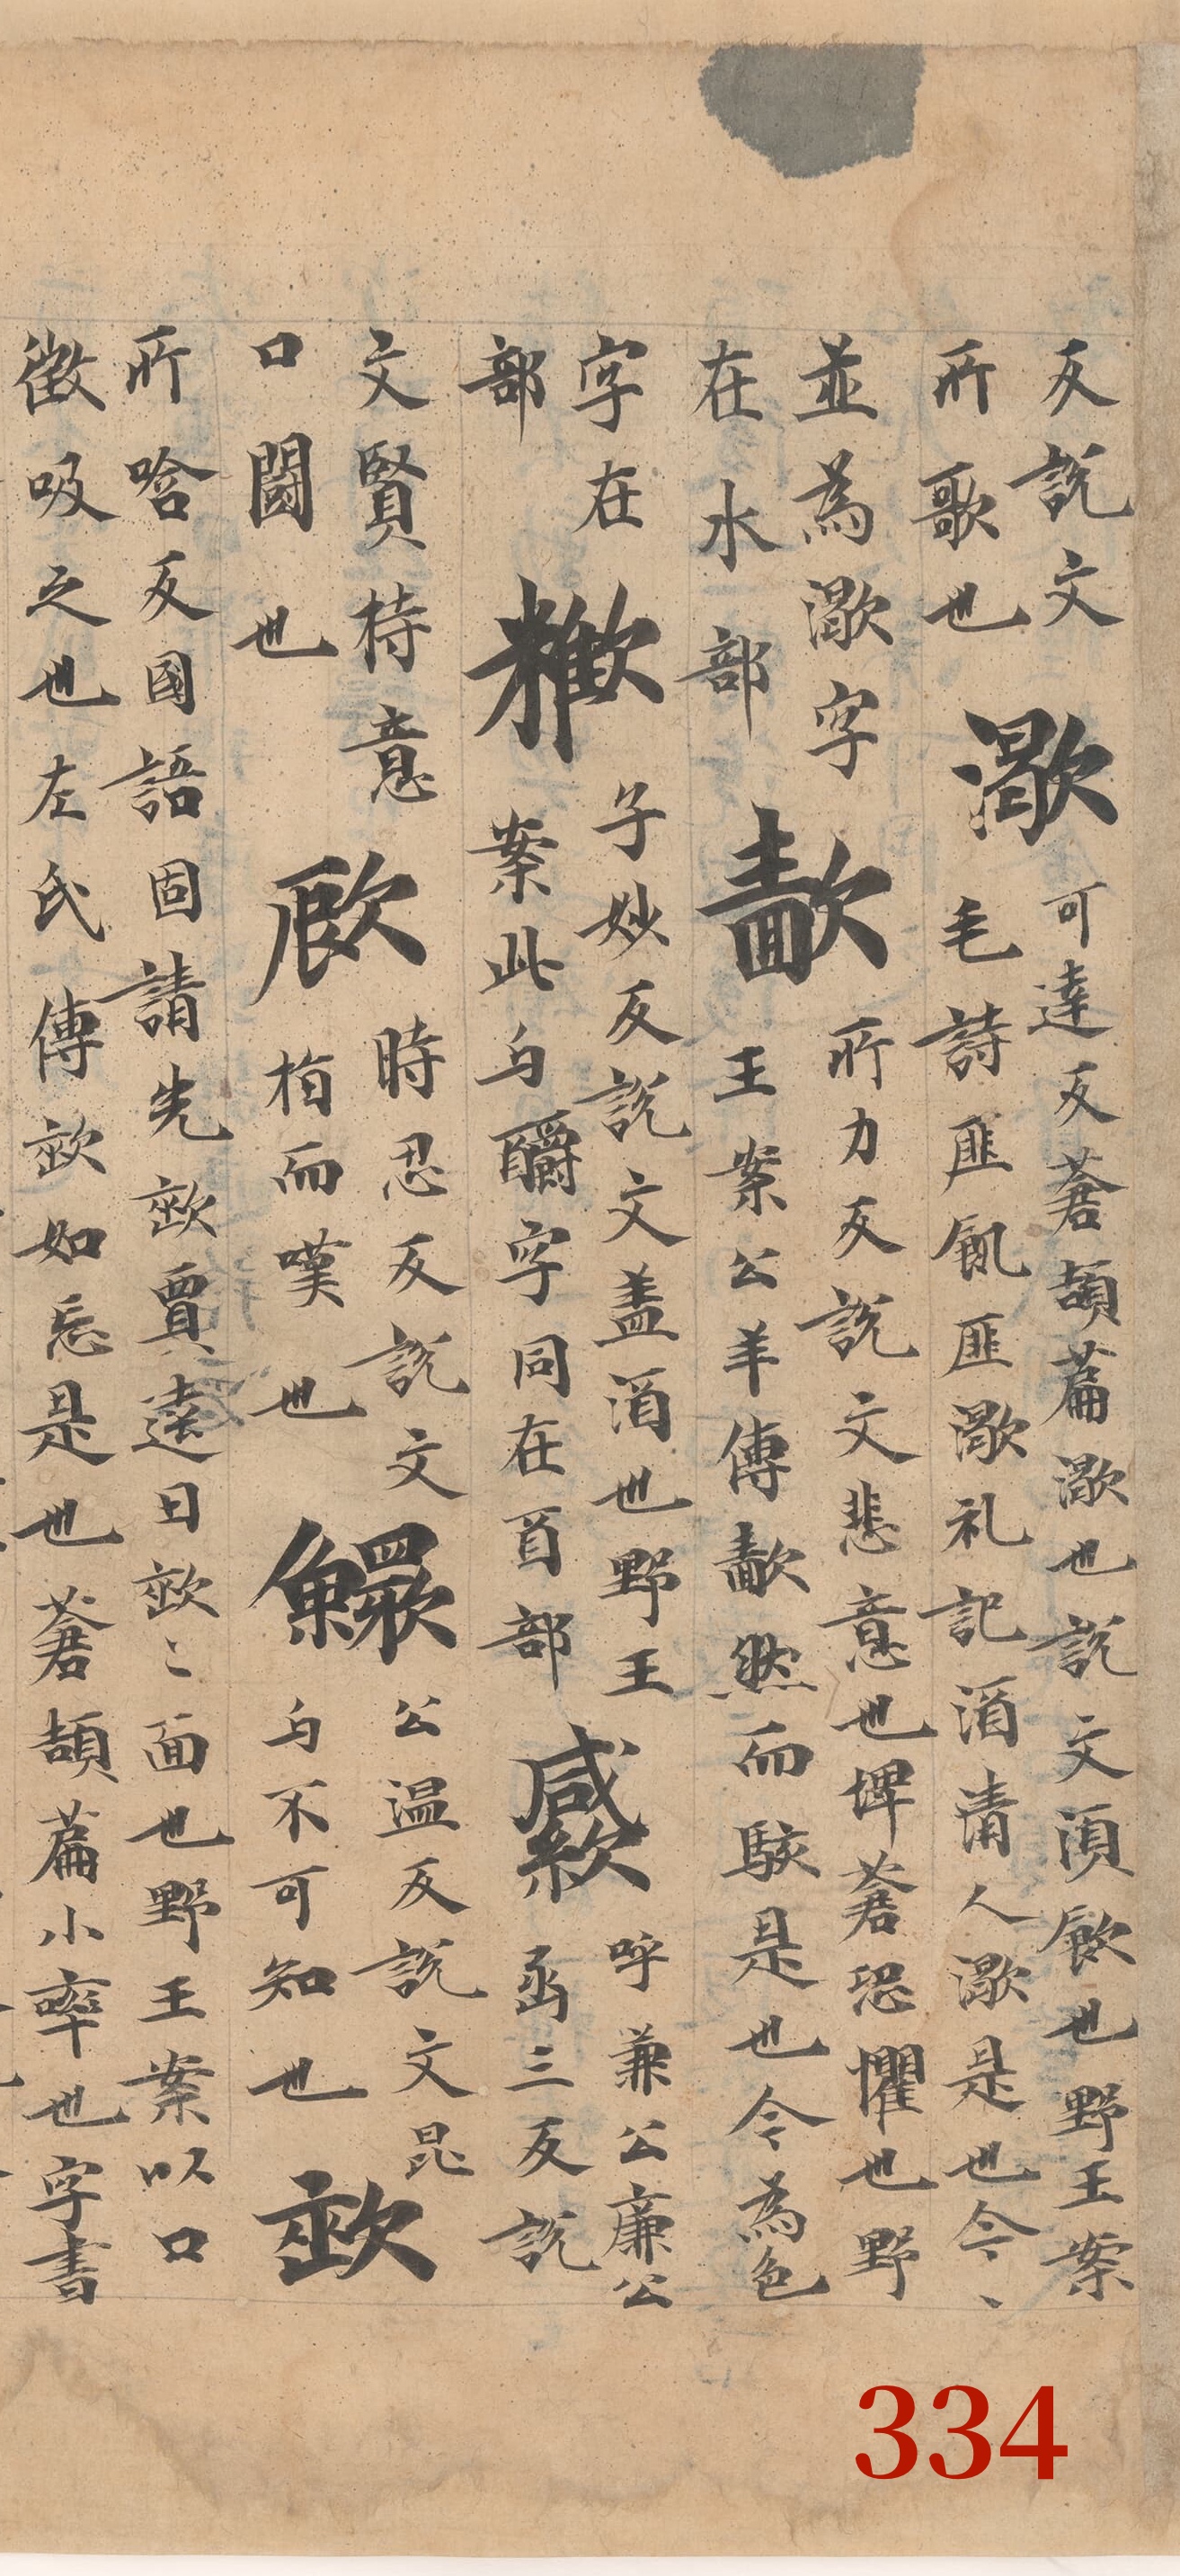 反說文
所歌也
㵣
可達反蒼頡篇㵣也說文湏飲也野王案
毛詩匪飢匪㵣礼記酒清人㵣是也今〻
並為㵣字
在水部
歗
所力反說文悲意也埤蒼恐懼也野
王案公羊傳歗然而駭是也今為色
字在
部
𣤶
子妙反說文盖酒也野王
案此与釂字同在酉部
呼兼公廉公
函三反說
文賢持意
口闘也
㰮
時忍反說文
栺而嘆也
公温反說文昆
与不可知也
㰱
所唅反國語固請先㰱賈逵曰㰱〻面也野王案以口
徴吸之也左氏傳㰱如忘是也蒼頡篇小啐也字書
334